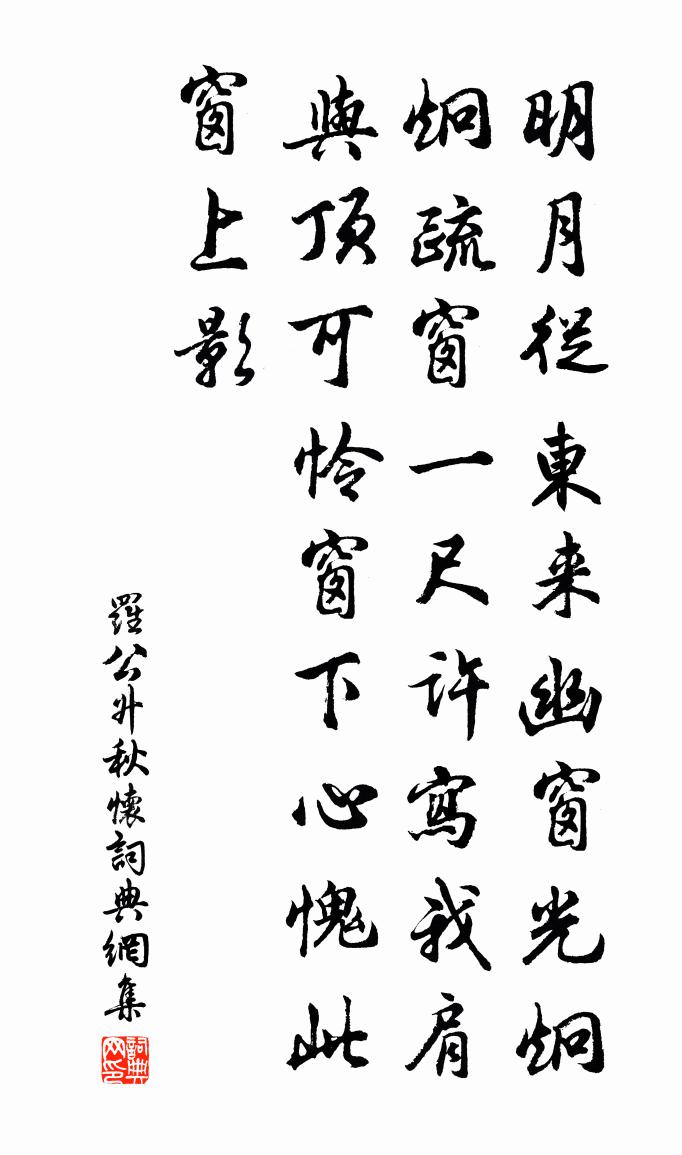 明月從東来幽窗光炯
炯疏窗一尺許寫我肩
與頂可怜窗下心愧此
窗上影
羅公升秋懷詞典網集
詞典网印